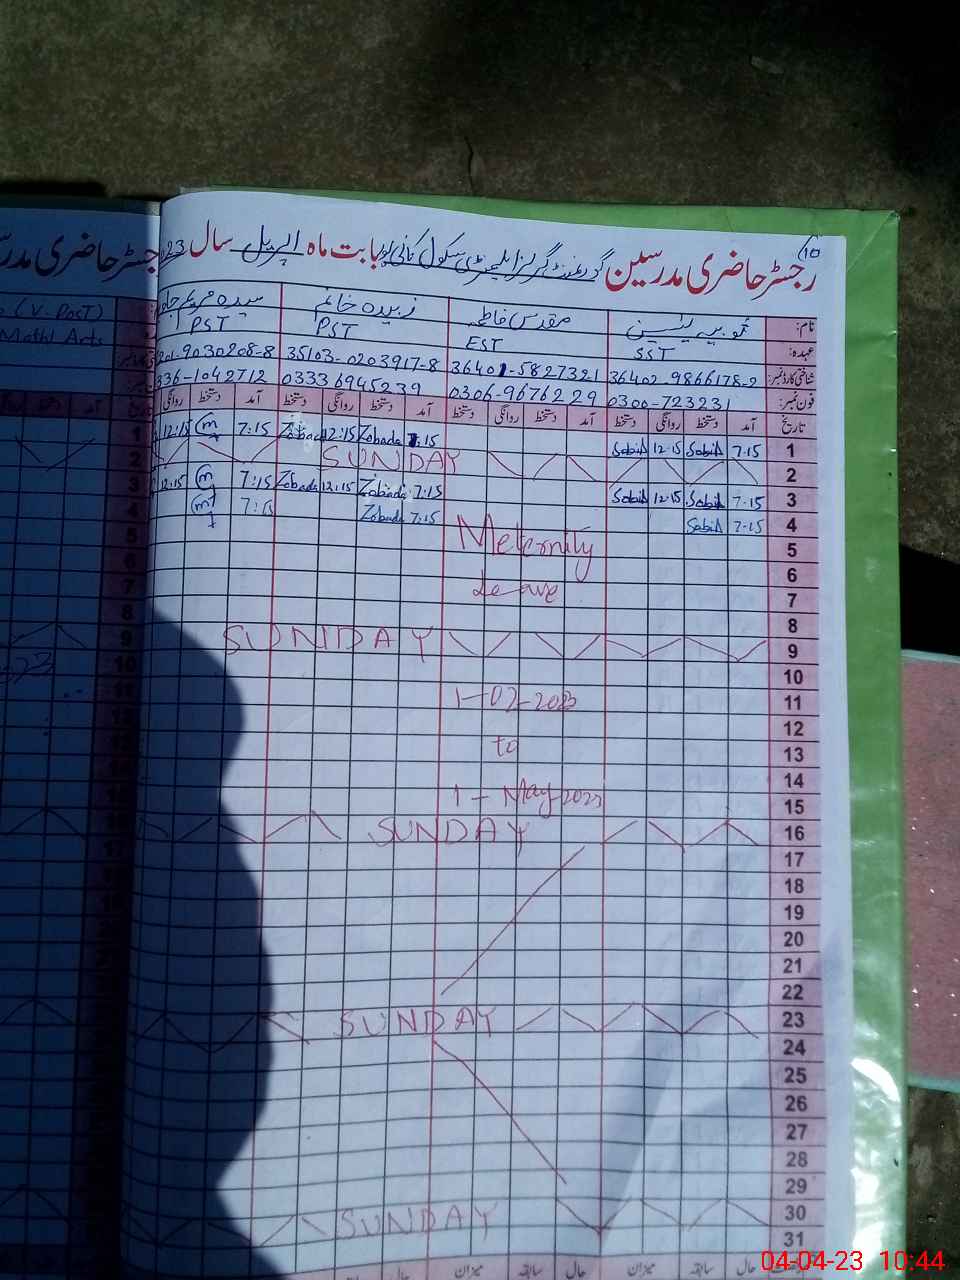 10
رجسٹر حاضری مدرسین گورنمنٹ گرلز ایلیمنٹری سکول بابت ماہ اپریل سال 23
نام: ثوبیہ یٰسین مقدس فاطمہ زبیدہ خانم سیدہ مریم
عہدہ: SST EST PST PST
شناختی کارڈ نمبر: 36402-9866178-2 36401-5827321 35103-0203917-8 201-9030208-8
فون نمبر: 0300-723231 0306-9676229 03336945239 336-1042712
تاریخ آمد دستخط روانگی دستخط آمد دستخط روانگی دستخط آمد دستخط روانگی دستخط آمد دستخط روانگی
1 7:15 Sabih 12:15 Sabih 7:15 Zobada 12:15 Zobada 7:15 12:15
2 SUNDAY
3 7:15 Sabih 12:15 Sabih 7:15 Zobada 12:15 Zobada 7:15 12:15
4 7:15 Sabih 7:15 Zobada 7:15
5 Meternity
6
7 leave
8
9 SUNDAY
10
11 1-02-2023
12
13 to
14
15 1-May 2023
16 SUNDAY
17
18
19
20
21
22
23 SUNDAY
24
25
26
27
28
29
30 SUNDAY
31
حال سابقہ میزان حال سابقہ میزان حال
(V. Post)
Math Arts
رجسٹر حاضری
04-04-23 10:44